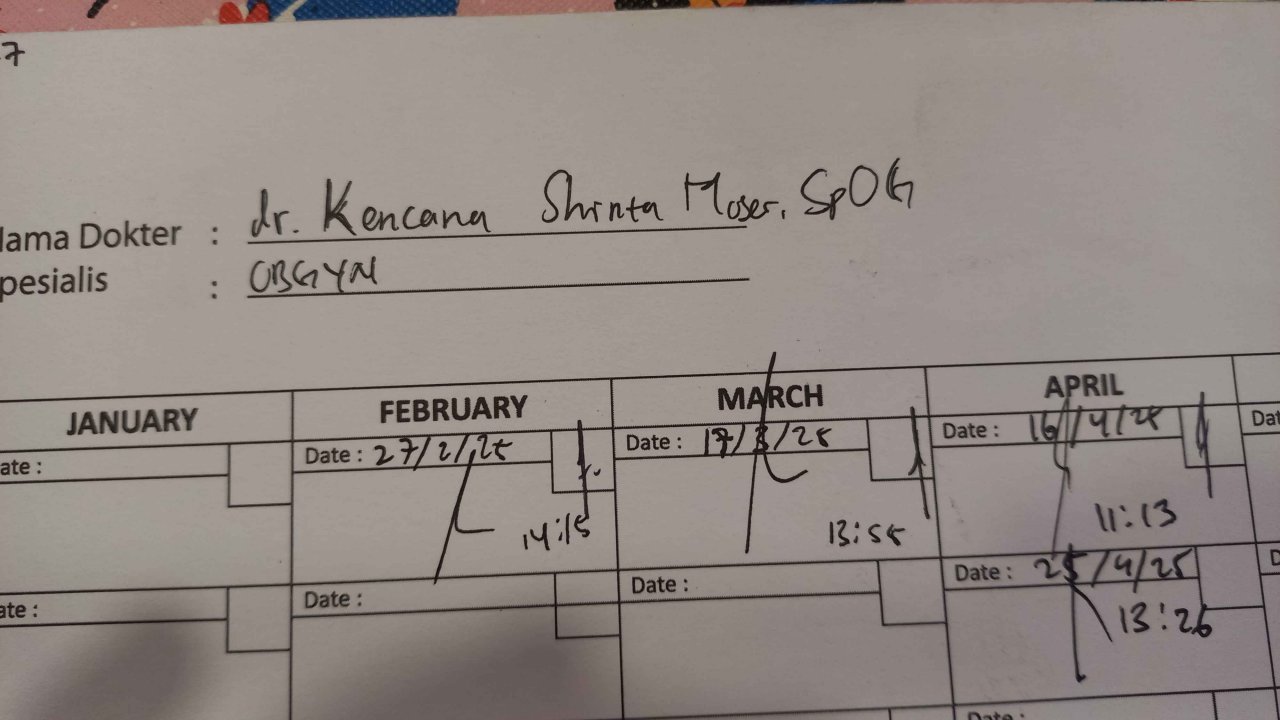 7
lama Dokter : dr. Kencana Shinta Moser. SpOG
pesialis : OBGYN
JANUARY FEBRUARY MARCH APRIL
ate : Date : 27/2/25 Date : 17/3/25 Date : 16/4/25 Dat
14:15 13:55 11:13
ate : Date : Date : Date : 25/4/25 D
13:26
Date :